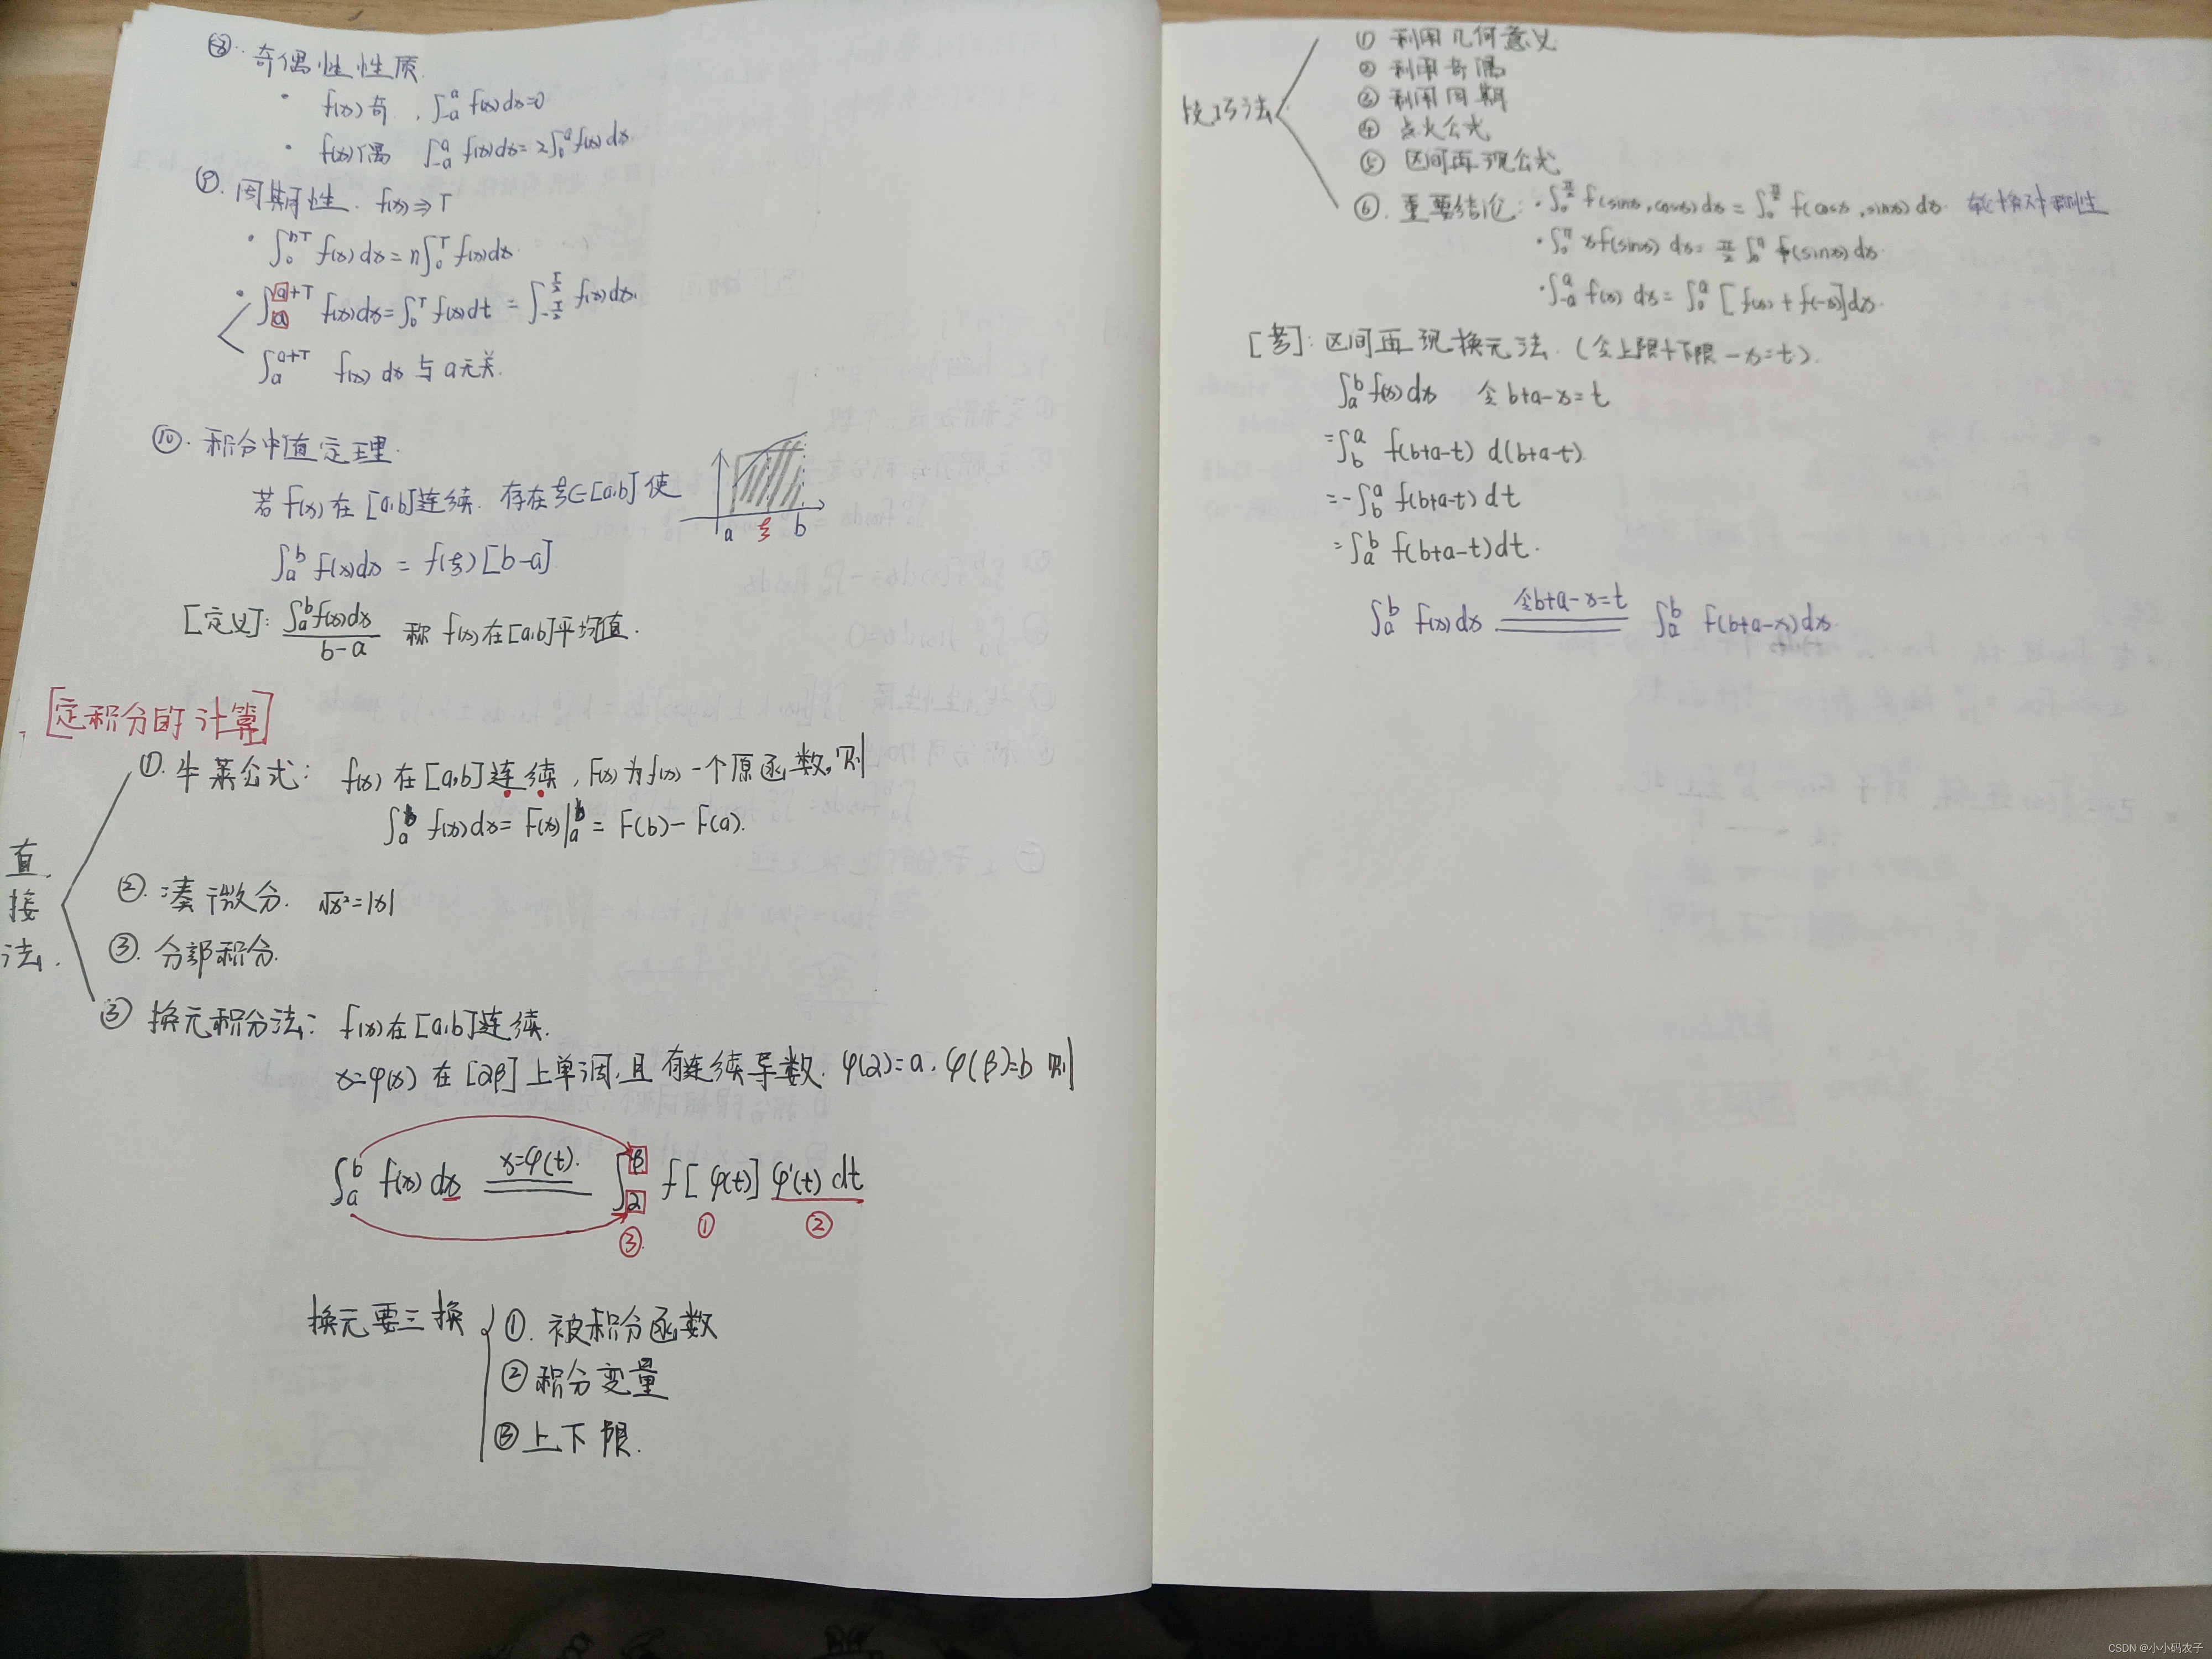 ⑧. 奇偶性性质.
· f(x)奇, ∫_{-a}^{a} f(x)dx=0
· f(x)偶 ∫_{-a}^{a} f(x)dx=2∫_0^a f(x)dx.
⑨. 周期性. f(x)⇒T
· ∫_0^{nT} f(x)dx=n∫_0^T f(x)dx.
· ∫_a^{a+T} f(x)dx=∫_0^T f(x)dt=∫_{-T/2}^{T/2} f(x)dx.
∫_a^{a+T} f(x)dx 与a无关.
⑩. 积分中值定理.
若f(x)在[a,b]连续. 存在ξ∈[a,b]使
∫_a^b f(x)dx = f(ξ)[b-a]
a ξ b
[定义]: ∫_a^b f(x)dx / b-a 称f(x)在[a,b]平均值.
[定积分的计算]
直接法.
①. 牛莱公式: f(x)在[a,b]连续, F(x)为f(x)一个原函数,则
∫_a^b f(x)dx= F(x)|_a^b = F(b)-F(a).
②. 凑微分. √x²=|x|
③. 分部积分.
③ 换元积分法: f(x)在[a,b]连续.
x=φ(x) 在[αβ]上单调,且有连续导数. φ(α)=a. φ(β)=b 则
∫_a^b f(x)dx x=φ(t). ∫_α^β f[φ(t)]φ'(t)dt
① ②
③.
换元要三换
①. 被积分函数
② 积分变量
③ 上下限.
技巧法
① 利用几何意义
② 利用奇偶
③ 利用周期
④ 点火公式
⑤ 区间再现公式
⑥. 重要结论: · ∫_0^{π/2} f(sinx,cosx)dx=∫_0^{π/2} f(cosx,sinx)dx. 轮换对称性
· ∫_0^π xf(sinx)dx= π/2 ∫_0^π f(sinx)dx.
· ∫_{-a}^a f(x)dx=∫_0^a [f(x)+f(-x)]dx.
: 区间再现换元法. (令上限+下限-x=t).
∫_a^b f(x)dx 令b+a-x=t
=∫_b^a f(b+a-t) d(b+a-t).
=-∫_b^a f(b+a-t)dt
=∫_a^b f(b+a-t)dt.
∫_a^b f(x)dx 令b+a-x=t ∫_a^b f(b+a-x)dx.
CSDN @小小码农子